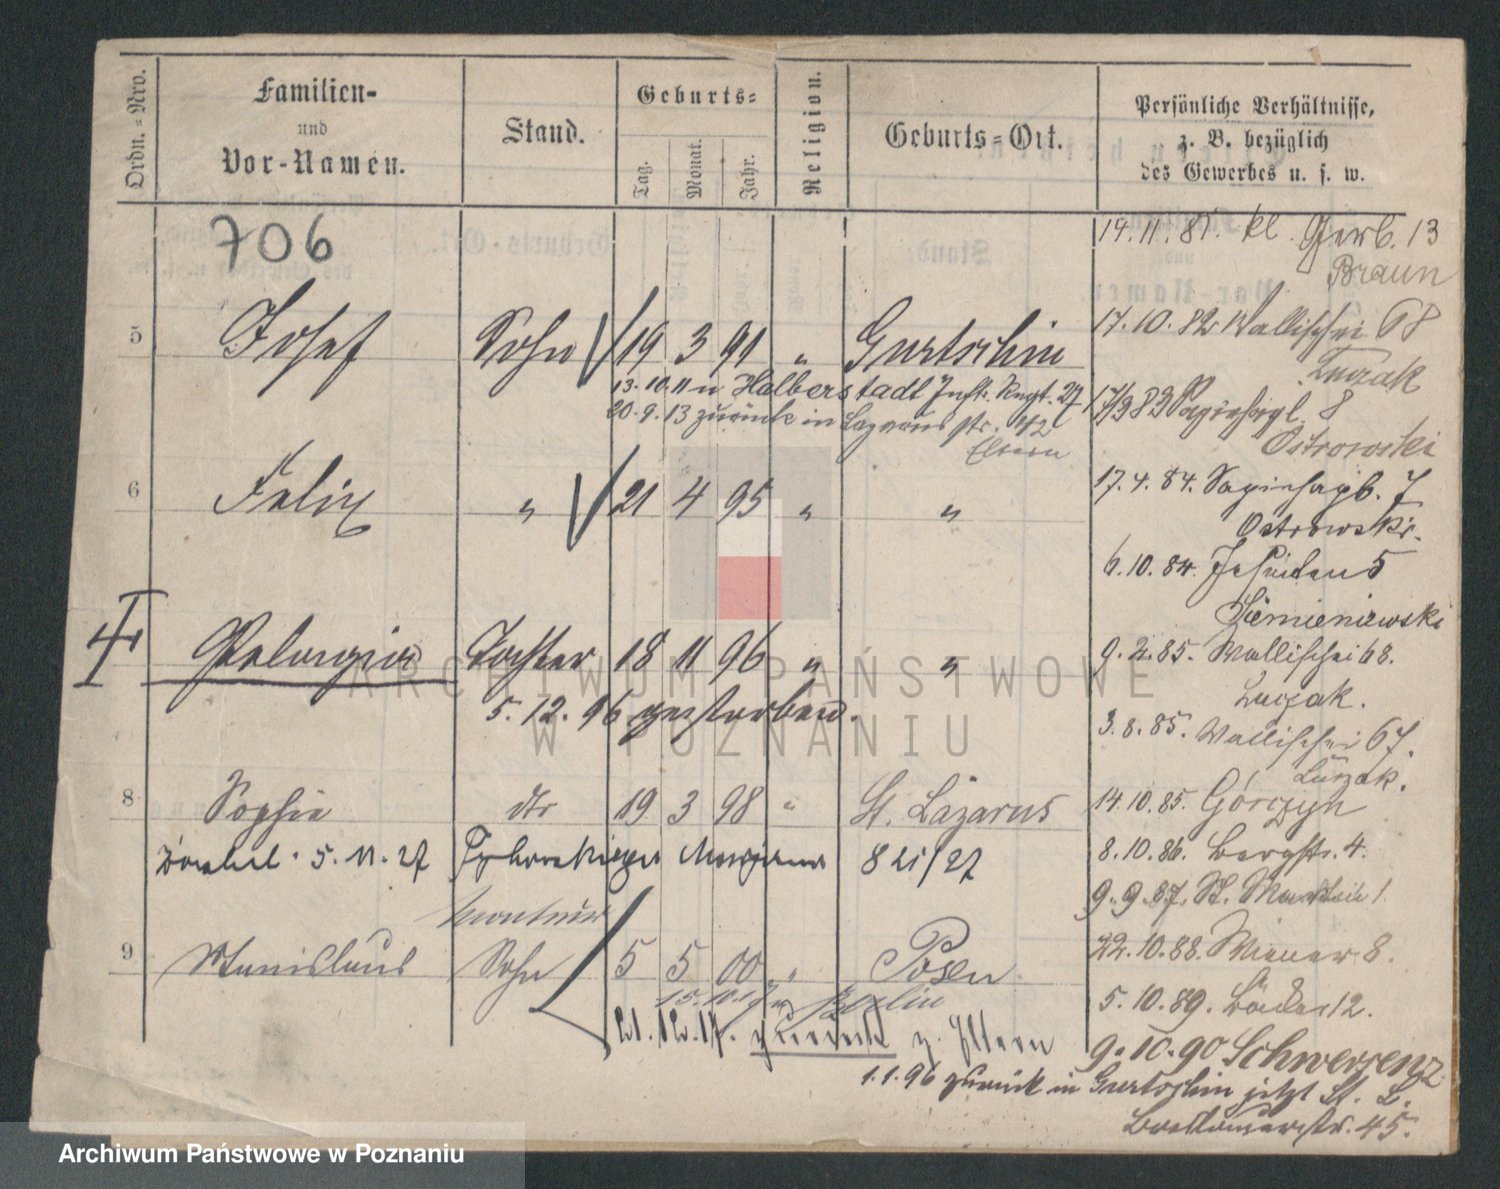 Ordn.=Nro.
Familien-
und
Vor-Namen.
Stand.
Geburts=
Tag.
Monat.
Jahr.
Religion.
Geburts=Ort.
Persönliche Verhältnisse,
z. B. bezüglich
des Gewerbes u. s. w.
706
14.11.81. kl. Gerb. 13
Braun
5 Josef Sohn 19 3 91 " Gurtschin
13.10.11 n Halberstadt Inftr. Regt. 27
20.9.13 zurück in Lazarus str. 42
Eltern
17.10.82 Wallischei 68
Luczak
17/3 83 Sapiehapl. 8
Ostrowski
6 Felix " 21 4 95 " "
17.4.84. Sapiehapl. 7
Ostrowski.
6.10.84. Jesuiten 5
Siemieniewski
Pelagia Tochter 18 11 96 " "
5.12.96 gestorben.
9.2.85. Wallischei 68.
Luczak.
3.8.85. Wallischei 67.
Luczak.
8 Sophie dtr 19 3 98 " St. Lazarus
14.10.85. Górczyn
5.11.27 8 21/27
8.10.86. Bergstr. 4.
9.9.87. St. Martin 1.
Monteur
9 Stanislaus Sohn 5 5 00 " Posen
22.10.88. Wiener 8.
Berlin
5.10.89. Bäcker 12.
21.12.17. zurück z. Eltern
9.10.90 Schwersenz
1.1.96 zurück in Gurtschin jetzt St. L.
Breslauerstr. 45.
ARCHIWUM PAŃSTWOWE
W POZNANIU
Archiwum Państwowe w Poznaniu